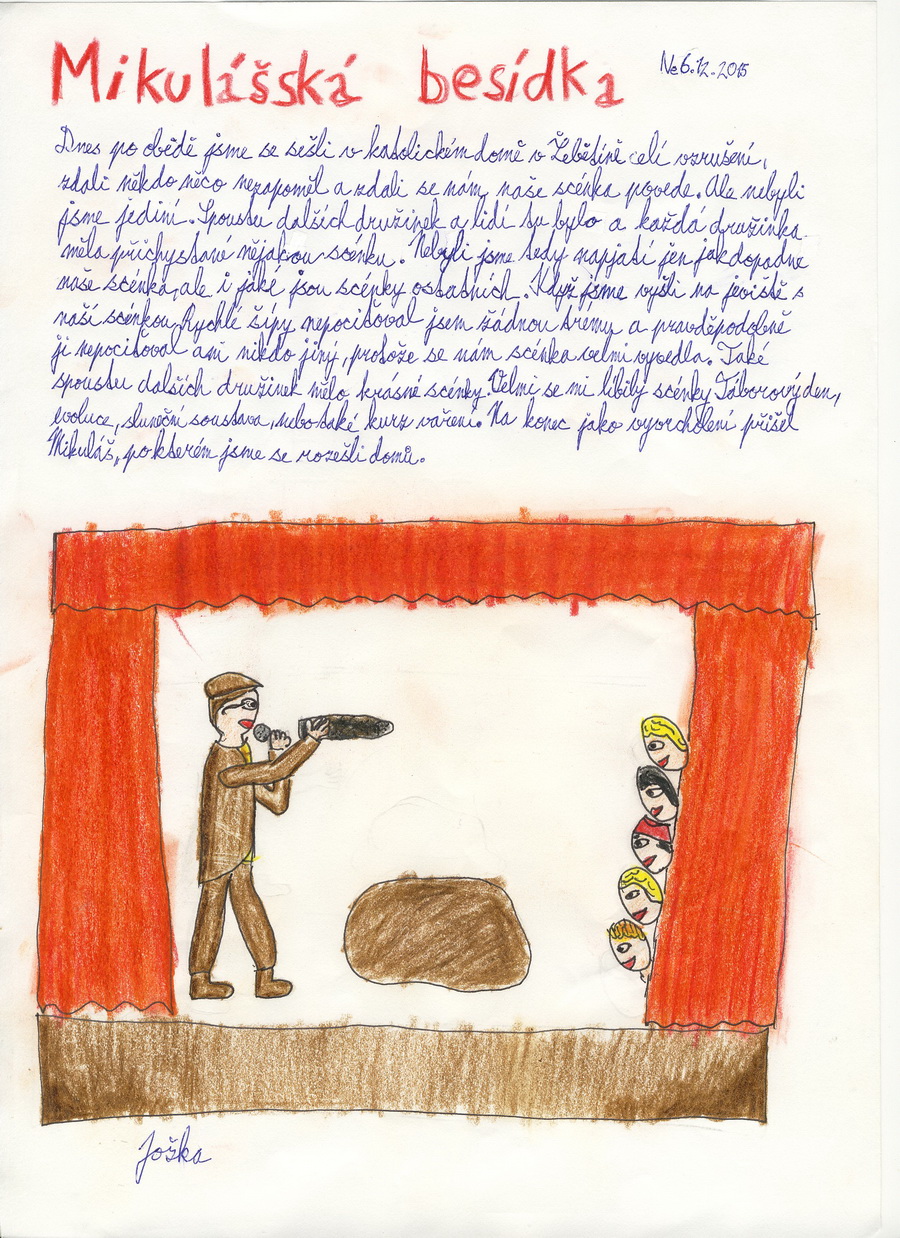 Mikulášská besídka
Ne 6.12.2015
Dnes po obědě jsme se sešli v katolickém domě v Žebětíně celí vzrušení,
zdali někdo něco nezapoměl a zdali se nám naše scénka povede. Ale nebyli
jsme jediní. Spoustu dalších družinek a lidí tu bylo a každá družinka
měla přichystané nějakou scénku. Nebyli jsme tedy napjatí jen jak dopadne
naše scénka, ale i jaké jsou scénky ostatních. Když jsme vyšli na jeviště s
naší scénkou Rychlé šípy nepociťoval jsem žádnou tremu a pravděpodobně
ji nepociťoval ani nikdo jiný, protože se nám scénka velmi vyvedla. Také
spoustu dalších družinek mělo krásné scénky. Velmi se mi líbily scénky Táborový den,
evoluce, sluneční soustava, nebo také kurz vaření. Na konec jako vyvrcholení přišel
Mikuláš, po kterém jsme se rozešli domů.
Joška